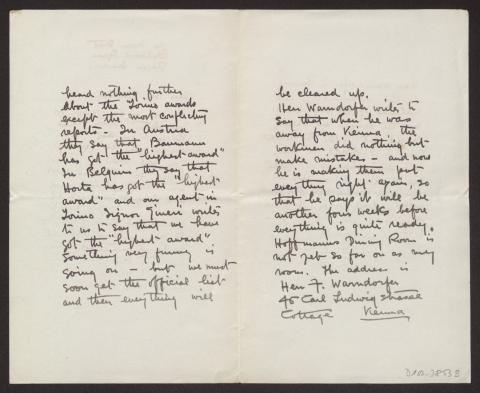 heard nothing further
about the Torino awards
except the most conflicting
reports – In Austria
they say that Baumann
has got the "highest award"
In Belgium they say that
Horta has got the "highest
award" and our agent in
Torino Signor writes
to us to say that we have
got the "highest award"
Something very funny is
going on – but we must
soon get the official list
and then everything will
be cleared up.
Herr Warndorfer writes to
say that when he was
away from Vienna, the
workmen did nothing but
make mistakes – and now
he is making them put
everything right again, so
that he says it will be
another four weeks before
everything is quite ready.
Hoffmanns Dining Room is
not yet so far on as my
room. The address is
Herr F. Warndorfer
45 Carl Ludwig Strasse
Cottage Vienna